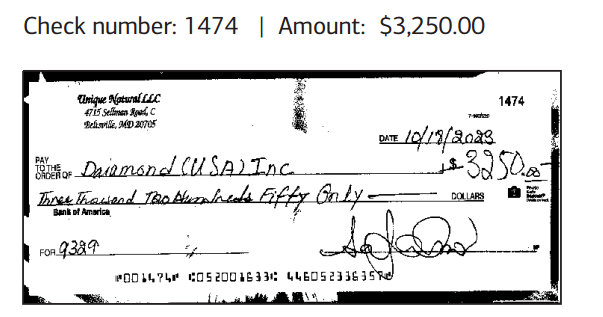 Check number: 1474 | Amount: $3,250.00
Unique Natural LLC
4715 Sellman Road, C
Beltsville, MD 20705
1474
DATE 10/18/2023
PAY TO THE ORDER OF Daiamond (USA) Inc $ 3250.00
Three Thousand Two Hundreds Fiffy Only DOLLARS
Bank of America
FOR 9329
⑈001474⑈ ⑆052001633⑆ 446052336357⑈